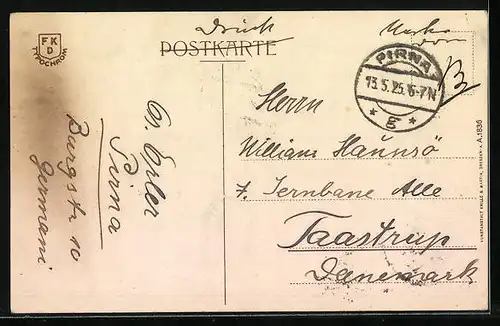 Druck
Marke
vorn
POSTKARTE
FKD
TYPOCHROM
PIRNA
13.5.25.6-7N
* E *
Herrn
William Hannsö
7. Jernbane Alle
Taastrup
Danemark
G. Epler
Pirna
Burgstr. 10
Germani
KUNSTANSTALT KROLLE & MARTIN, DRESDEN-A. A.1836